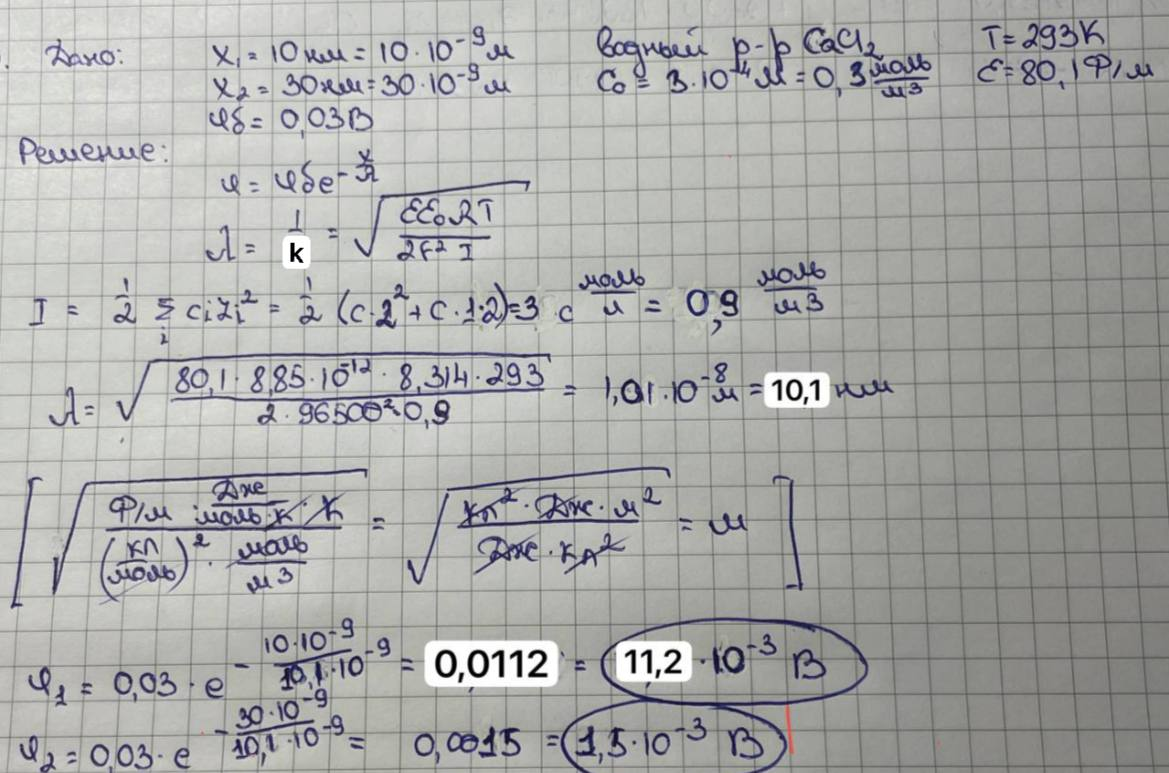 Дано: x₁ = 10 нм = 10·10⁻⁹ м водный р-р CaCl₂ T = 293 K
x₂ = 30 нм = 30·10⁻⁹ м C₀ = 3·10⁻⁴ М = 0,3 моль/м3 ε = 80,1 Ф/м
φδ = 0,03 В
Решение:
φ = φδ e^(-x/λ)
λ = 1/k = √(εε₀RT / 2F² I)
I = 1/2 Σᵢ cᵢzᵢ² = 1/2 (c·2² + c·1·2) = 3 c моль/л = 0,9 моль/м3
λ = √(80,1 · 8,85·10⁻¹² · 8,314 · 293 / 2 · 96500² · 0,9) = 1,01·10⁻⁸ м = 10,1 нм
[√(Ф/м Дж/моль·К · К / (Кл/моль)² · моль/м3) = √(Кл² · Дж · м² / Дж · Кл²) = м]
φ₁ = 0,03 · e^(-10·10⁻⁹ / 10,1·10⁻⁹) = 0,0112 = 11,2 · 10⁻³ В
φ₂ = 0,03 · e^(-30·10⁻⁹ / 10,1·10⁻⁹) = 0,0015 = 1,5·10⁻³ В